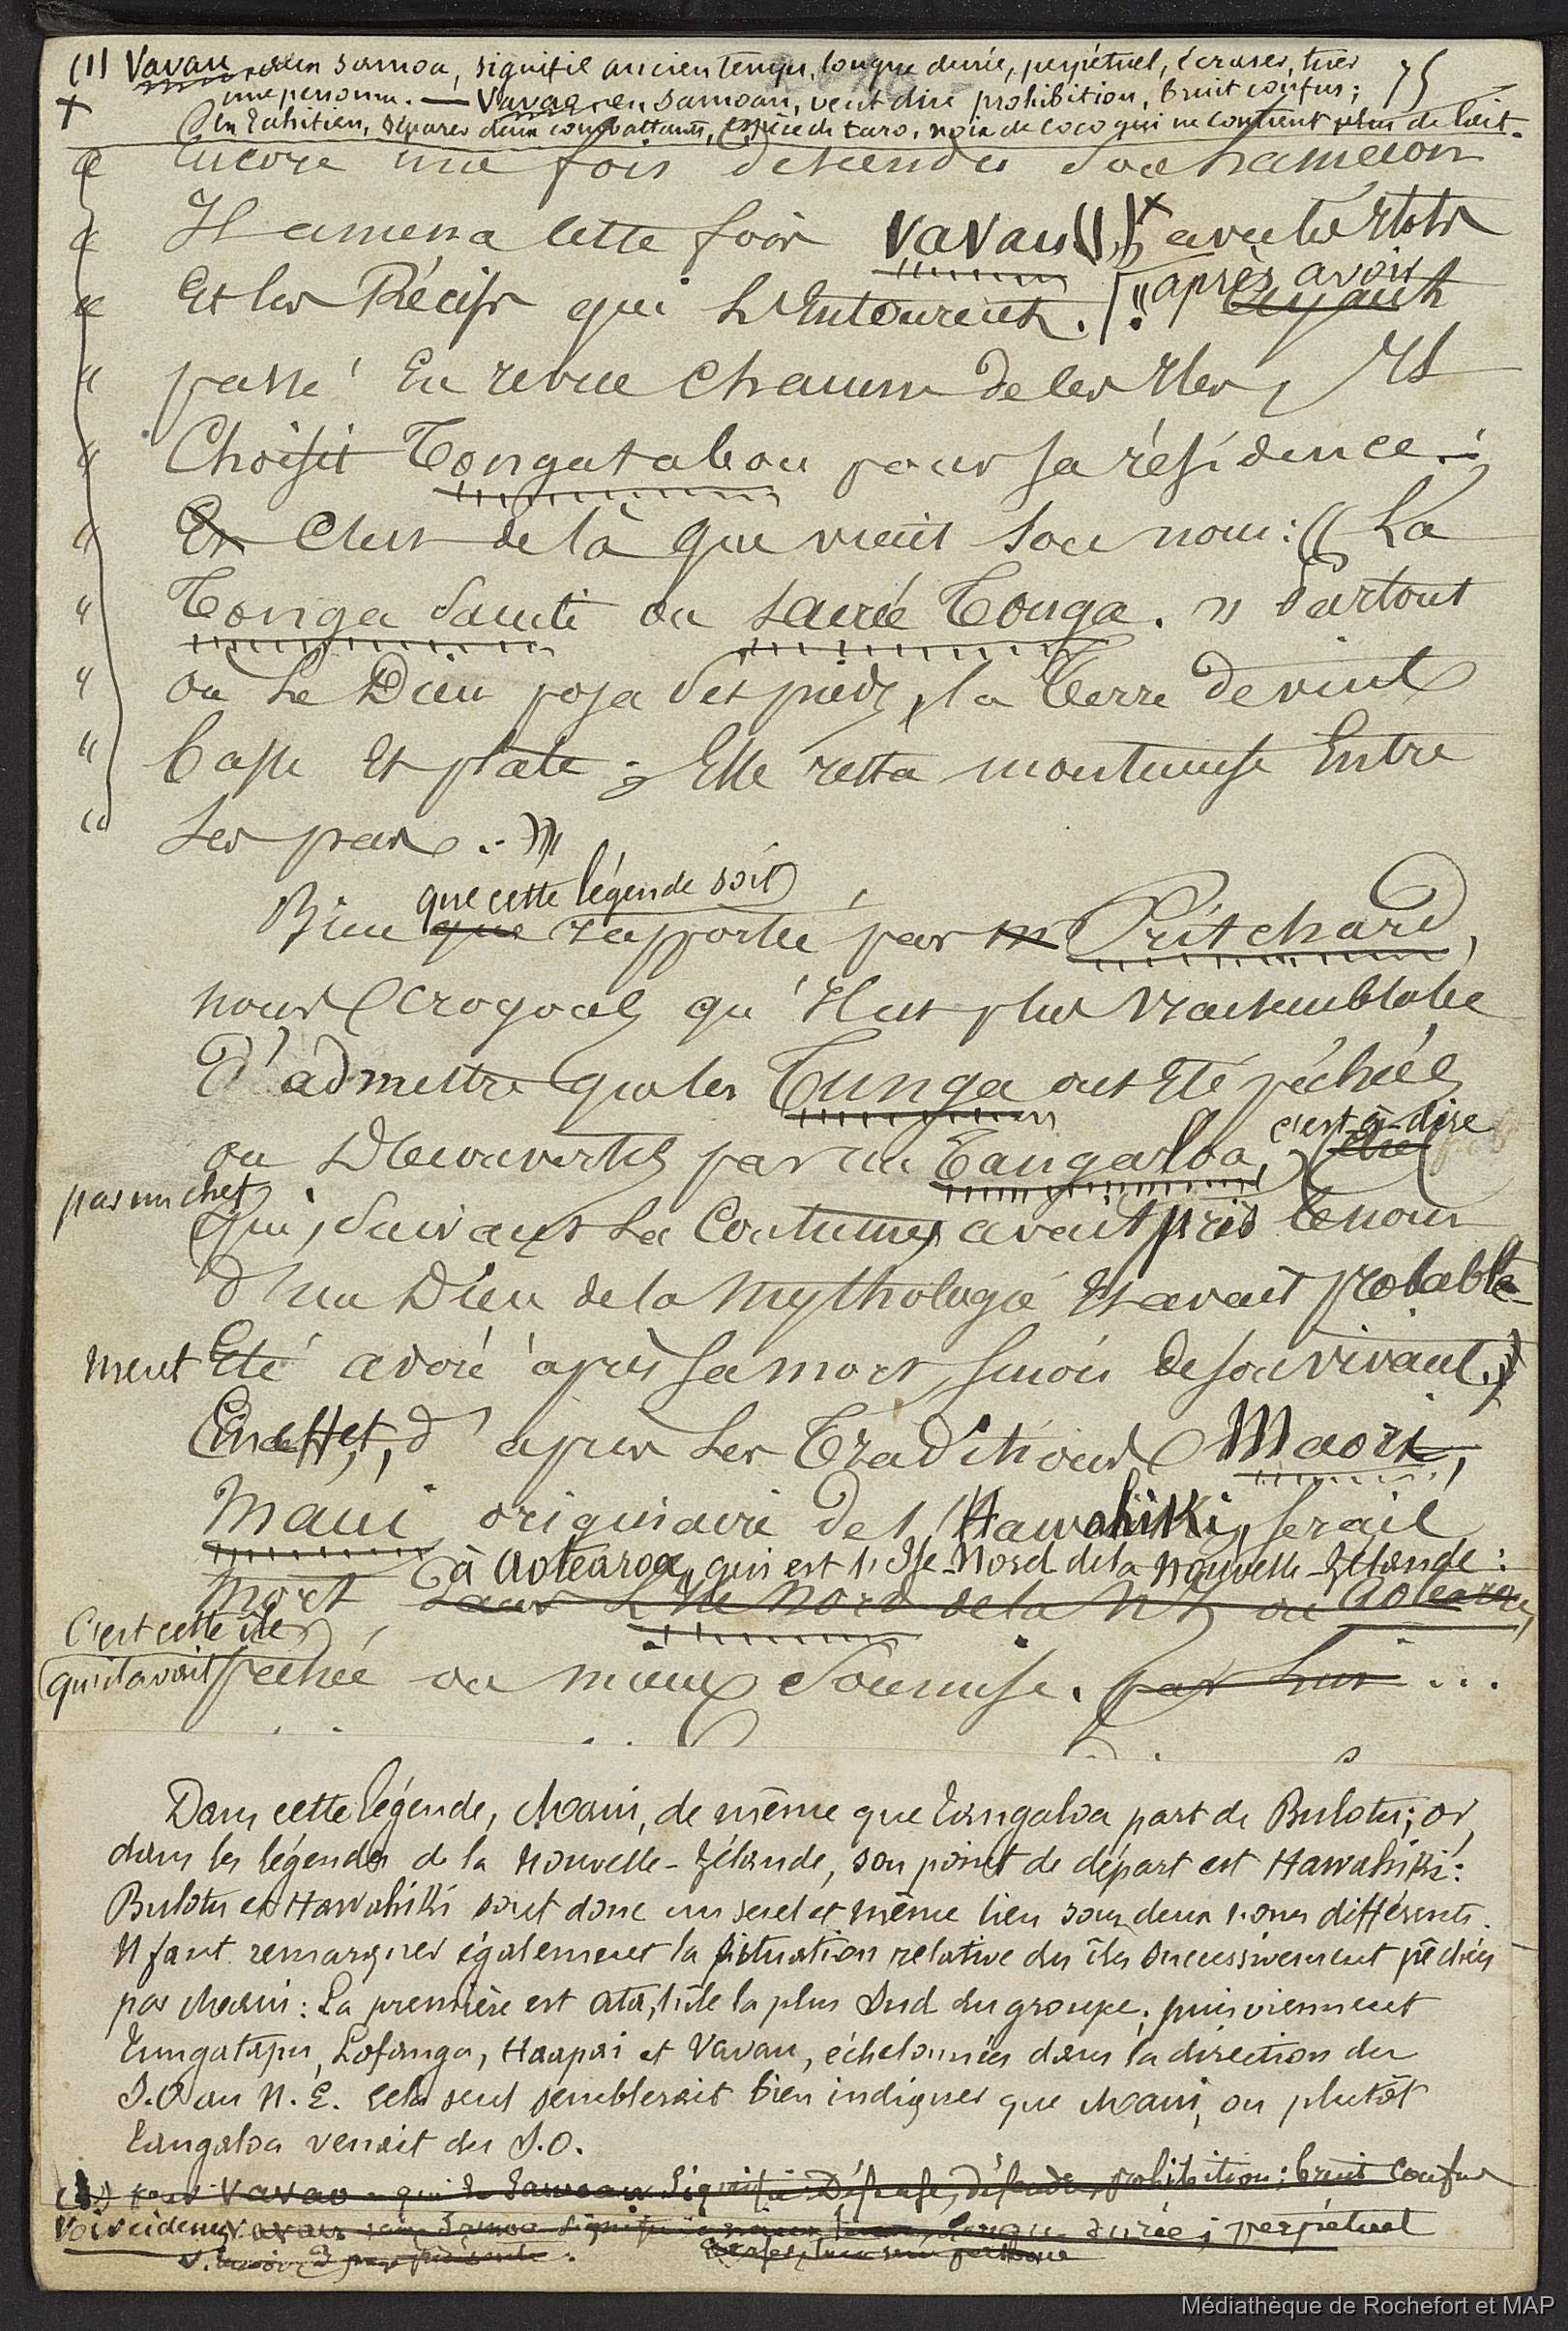 (1) Vavau, en samoa, signifie ancien temps, longue durée, perpétuel, écraser, tuer 75
une personne. — Vavao, en samoan, veut dire prohibition, bruit confus;
+ en tahitien, séparer deux combattants, espèce de taro, noix de coco qui ne contient plus de lait.
" Encore une fois descendre son hameçon
" Il amena cette fois Vavau (1) + avec les Ilots
" Et les Récifs qui L'Entourent. " après avoir Ayant
" passé En revue chacune de ces Iles, Il
" Choisit Tongatabou pour sa résidence :
" Et C'est de là que vient son nom : " La
" Tonga Sainte ou sacrée Tonga. " Partout
" où Le Dieu posa ses pieds, la Terre devint
" basse Et plate ; Elle resta montueuse Entre
" Ses pas. "
Bien que que cette légende soit rapportée par M Pritchard,
nous croyons qu'Il est plus vraisemblable
D'admettre que les Tunga ont Eté pêchées
ou Découvertes par un Tangaloa, c'est-à-dire
par un chef
qui, Suivant La Coutume, avait pris le nom
d'un Dieu de la Mythologie Et avait probable-
ment Eté adoré après sa mort, sinon de son vivant.)
En effet, d'après Les Traditions Maori,
Maui, originaire de l'Hawahiki, serait
à Aotearoa, qui est l'Ile-Nord de la Nouvelle-Zélande :
mort dans L'Ile Nord de la N Z ou Aotearoa,
C'est cette île
qu'il avait pêchée ou mieux Soumise. par lui ...
Dans cette légende, Maui, de même que Tangaloa part de Bulotu; or,
dans les légendes de la Nouvelle-Zélande, son point de départ est Hawahiki :
Bulotu et Hawahiki sont donc un seul et même lieu sous deux noms différents.
Il faut remarquer également la situation relative des îles successivement pêchées
par Maui : La première est Ata, l'île la plus Sud du groupe; puis viennent
Tungatapu, Lofanga, Haapai et Vavau, échelonnées dans la direction du
S.O au N.E. Cela seul semblerait bien indiquer que Maui, ou plutôt
Tangaloa venait du S.O.
(1) Vavao qui en Samoan Signifie Défense, défendre, prohibition; bruit confus
Voir ci-dessus Vavau Samoa signifie ancien temps, longue durée; perpétuel
Ecraser, tuer une personne